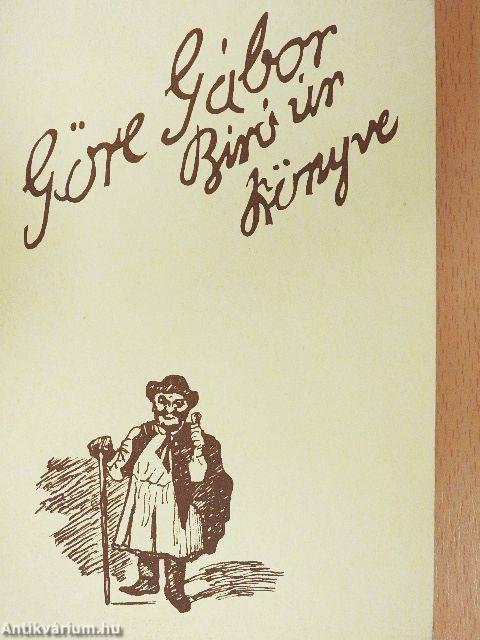 Göre Gábor
Biró úr
könyve
Antikvárium.hu